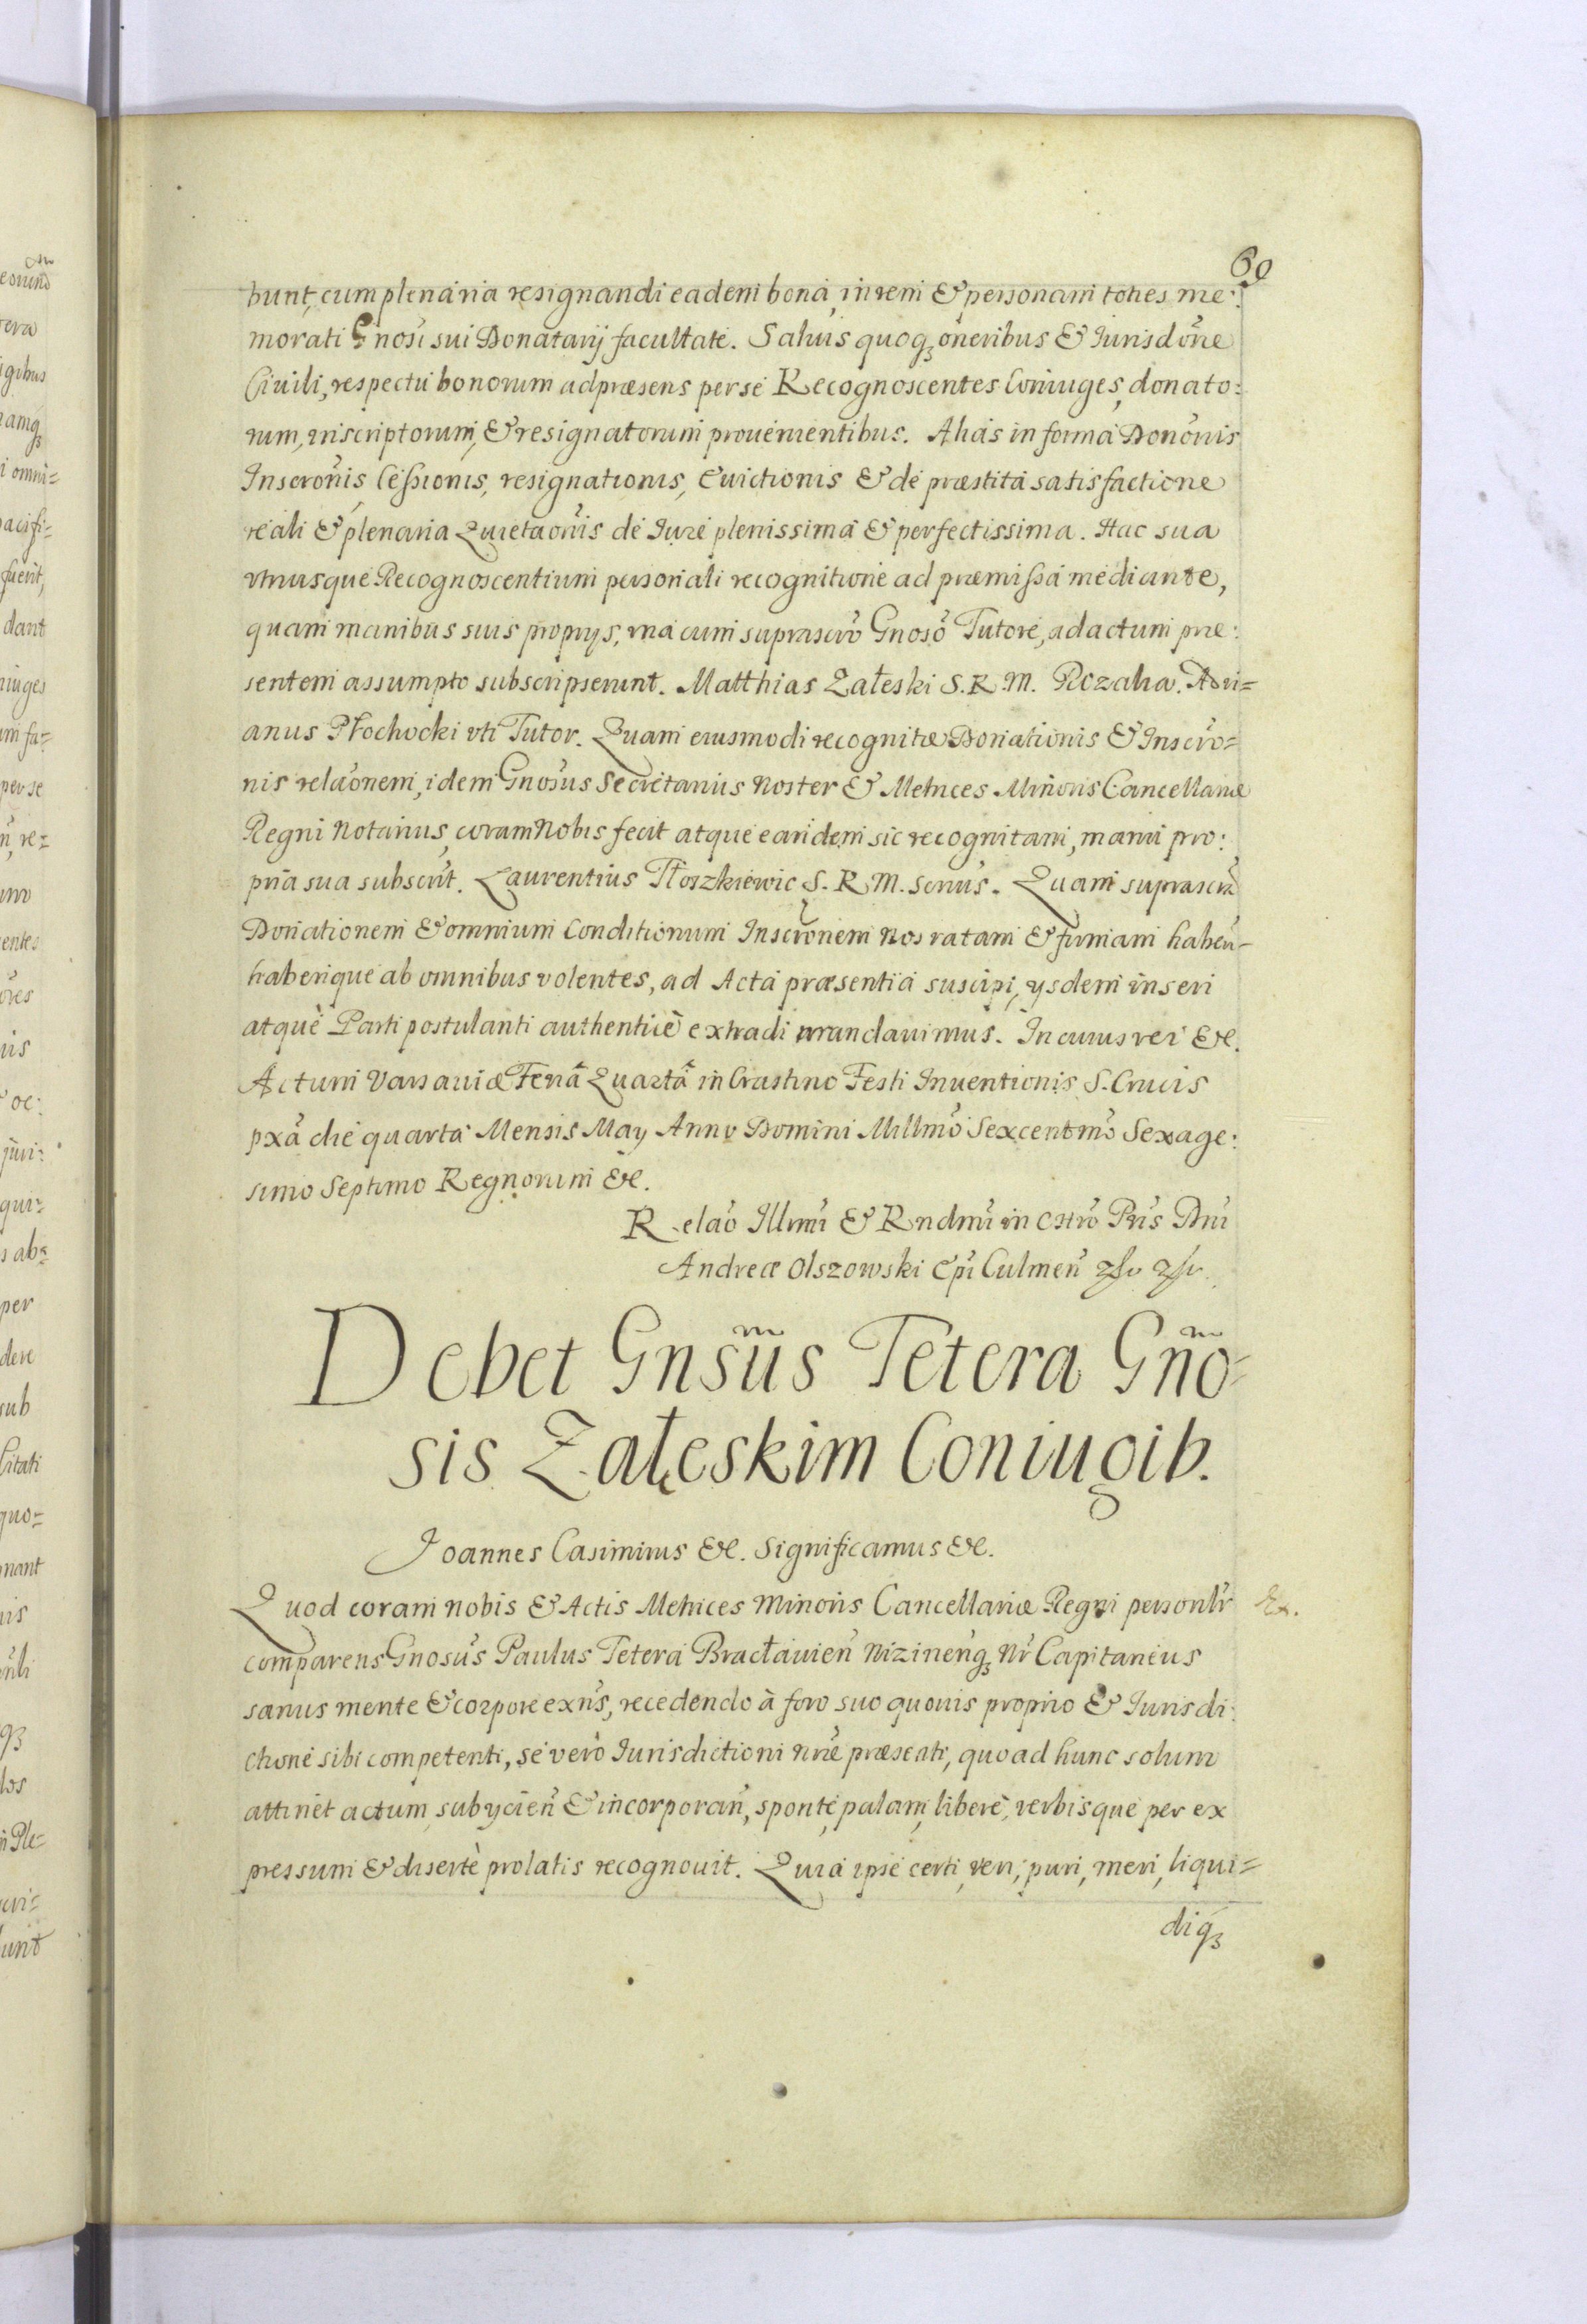 60
bunt, cum plenaria resignandi eadem bona, in rem & personam toties me:
morati Gnosi sui Donatarij facultate. Saluis quoq3 oneribus & Iurisdone
Ciuili, respectu bonorum ad præsens per se Recognoscentes Coniuges, donato:
rum, inscriptorum, & resignatorum prouenientibus. Alias in forma Dononis
Inscronis Cessionis, resignationis, Euictionis & de præstita satisfactione
reali & plenaria Quietaonis de Iure plenissima & perfectissima. Hac sua
vtriusque Recognoscentium personali recognitione ad præmissa mediante,
quam manibus suis proprijs, vna cum suprascro Gnoso Tutore, ad actum præ:
sentem assumpto subscripserunt. Matthias Zaleski S. R. M. Rozalia. Adri=
anus Płochocki vti Tutor. Quam eiusmodi recognitæ Donationis & Inscro=
nis relaonem, idem Gnosus Secretarius Noster & Metrices Minoris Cancellariæ
Regni Notarius, coram Nobis fecit atque eandem sic recognitam, manu pro:
pria sua subscrit. Laurentius Płoszkiewic S. R. M. Scrius. Quam suprascra
Donationem & omnium Conditionum Inscronem Nos ratam & firmam haberi=
haberique ab omnibus volentes, ad Acta præsentia suscipi, ijsdem inseri
atquè Parti postulanti authenticè extradi mandauimus. In cuius rei &c.
Actum Varsauiæ Feriâ Quartâ in Crastino Festi Inuentionis S. Crucis
pxa die quarta Mensis Maij Anno Domini Millmo Sexcentmo Sexage:
simo Septimo Regnorum &c.
Relao Illmi & Rndmi in Chro Pris Dni
Andreæ Olszowski Epi Culmen
Debet Gnsus Tetera Gno=
sis Załeskim Coniugib.
Joannes Casimirus &c. Significamus &c.
Quod coram nobis & Actis Metrices Minoris Cancellariæ Regni personlr
Ex.
comparens Gnosus Paulus Tetera Bractauien Nizinenq3 Nr Capitaneus
sanus mente & corpore exns, recedendo à foro suo quouis proprio & Jurisdi:
ctione sibi competenti, se vero Iurisdictioni nræ præsenti, quo ad hunc solum
attinet actum, subijcien & incorporan, sponte, palam, libere, verbisque per ex
pressum & disertè prolatis recognouit. Quia ipse certi, veri, puri, meri, liqui=
diq3